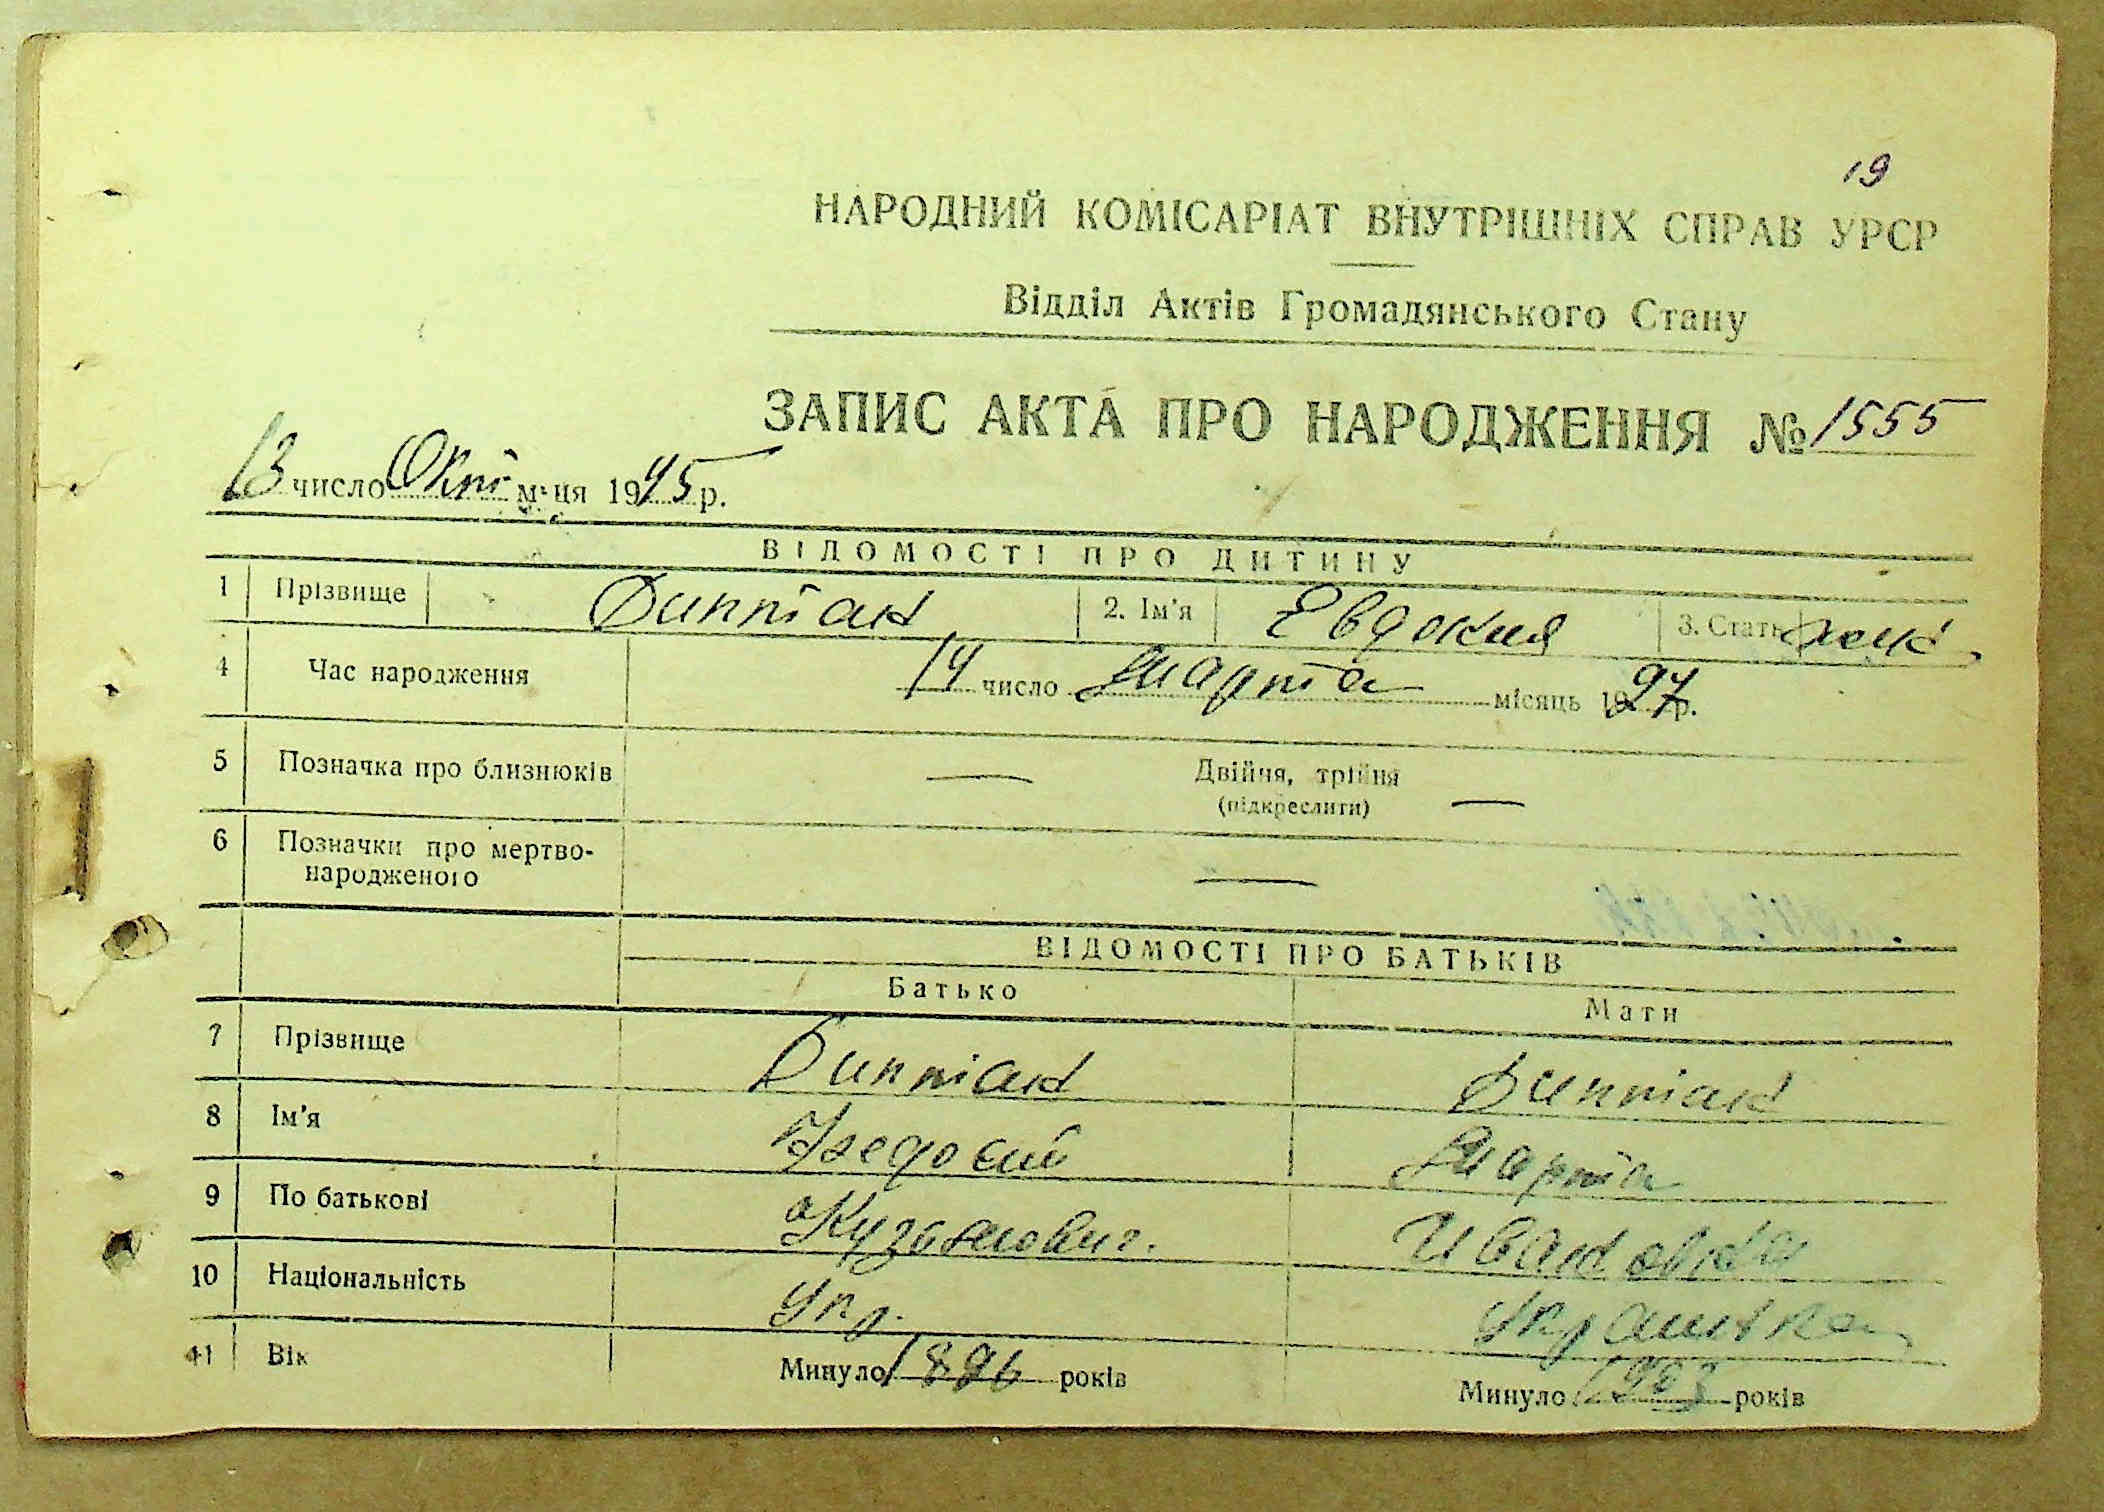 19
НАРОДНИЙ КОМІСАРІАТ ВНУТРІШНІХ СПРАВ УРСР
Відділ Актів Громадянського Стану
ЗАПИС АКТА ПРО НАРОДЖЕННЯ № 1555
13 число Окт м-ця 1945 р.
ВІДОМОСТІ ПРО ДИТИНУ
1 Прізвище 2. Ім'я Евдокия 3. Стать
4 Час народження 14 число марта місяць 1927 р.
5 Позначка про близнюків — Двійня, трійня —
(підкреслити)
6 Позначки про мертво-
народженого —
ВІДОМОСТІ ПРО БАТЬКІВ
Батько Мати
7 Прізвище
8 Ім'я Федосий Марта
9 По батькові Кузьмович. Ивановна
10 Національність Укр. Украинка
11 Вік Минуло 1896 років Минуло 1903 років